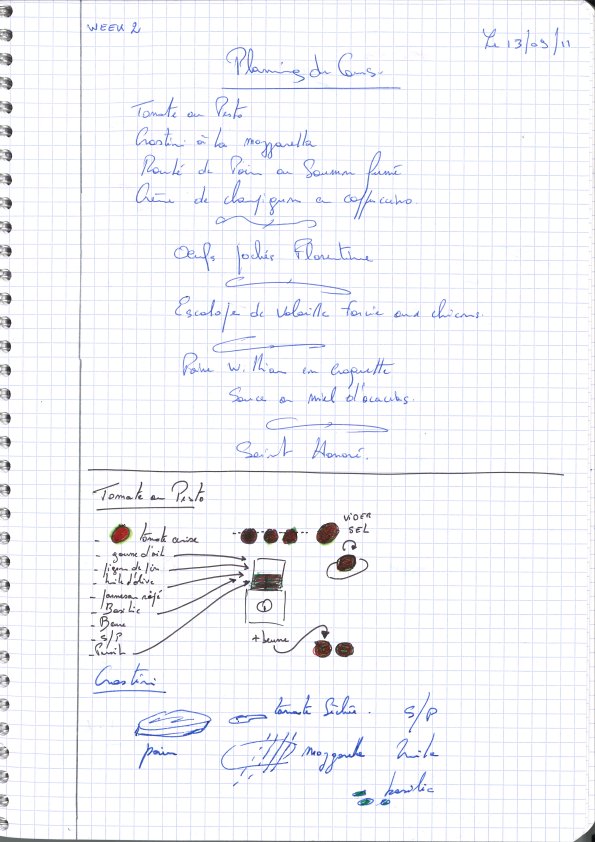 WEEK 2
Le 13/09/11
Planning du Cours.
Tomate au Pesto
Crostini à la mozzarella
Roulé de Pain au Saumon fumé
Crème de champignon en cappuccino
Oeufs pochés Florentine
Escalope de Volaille farcie aux chicons.
Poire William en croquette
Sauce au miel d'acacias.
Saint Honoré.
Tomate au Pesto
VIDER
SEL
- tomate cerise
- gousse d'ail
- pignon de pin
- huile d'olive
- parmesan râpé
- Basilic
- Beurre
- S/P
- Persil
+ beurre
Crostini
tomate séchée. S/P
pain mozzarella huile
basilic